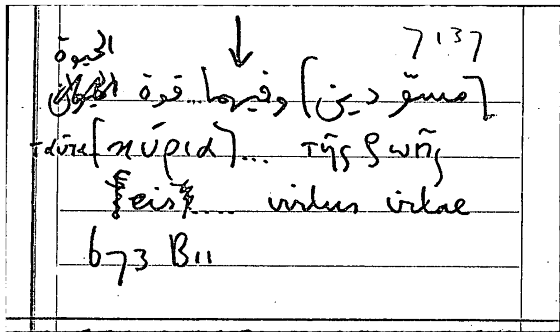 7137
الحيوة
[مسوّدين] وفيهما... قوة
ταῦτα [κύρια]... τῆς ζωῆς
eis..... virtus vitae
673 B11